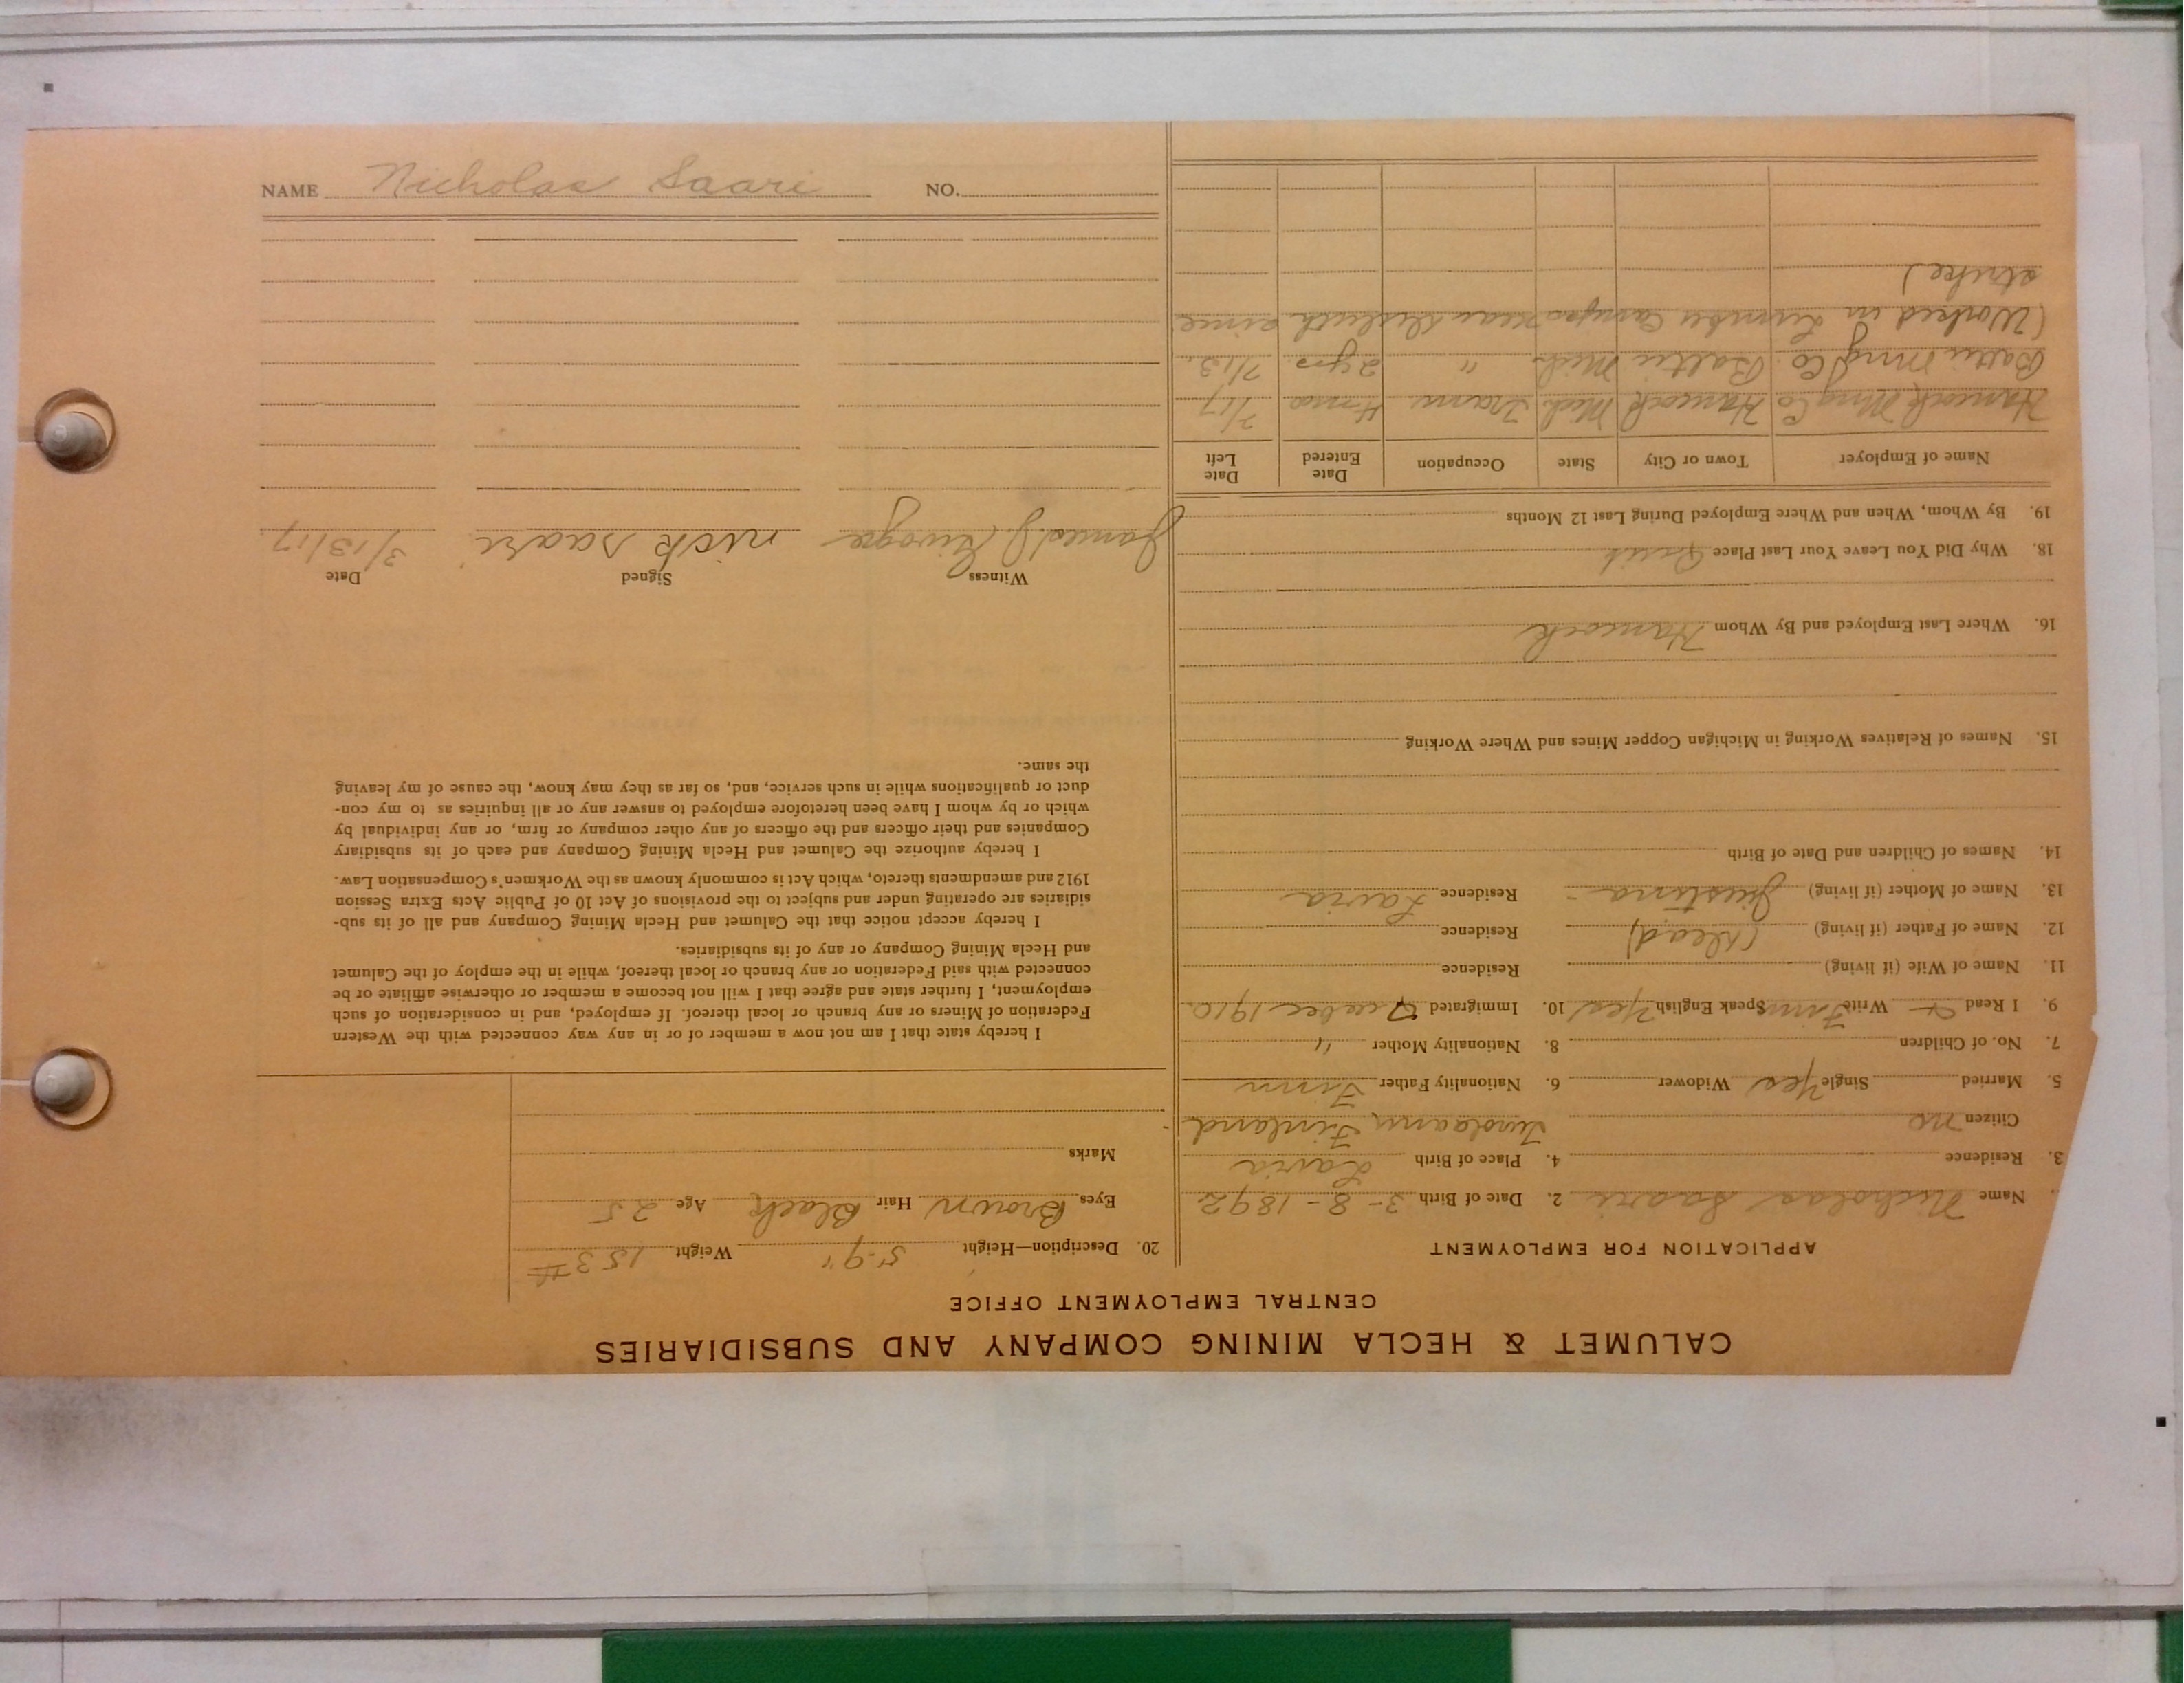 CALUMET & HECLA MINING COMPANY AND SUBSIDIARIES
CENTRAL EMPLOYMENT OFFICE
APPLICATION FOR EMPLOYMENT
Name Nicholas Saari 2. Date of Birth 3-8-1892
3. Residence 4. Place of Birth Lavia
Citizen no Finland
5. Married Single Yes Widower 6. Nationality Father Finn
7. No. of Children 8. Nationality Mother "
9. I Read + Write Finn Speak English Yes 10. Immigrated 1910
11. Name of Wife (if living) Residence
12. Name of Father (if living) (Dead) Residence
13. Name of Mother (if living) Justina - Residence Lavia
14. Names of Children and Date of Birth
15. Names of Relatives Working in Michigan Copper Mines and Where Working
16. Where Last Employed and By Whom Hancock
18. Why Did You Leave Your Last Place Quit
19. By Whom, When and Where Employed During Last 12 Months
Name of Employer Town or City State Occupation Date Entered Date Left
Hancock Mng Co Hancock Mich Tram 4 mos 2/17
Baltic Mng Co. Baltic Mich. " 2 yrs 7/13.
(Worked in Lumber Camps near Duluth since
strike)
20. Description—Height 5-9" Weight 153#
Eyes Brown Hair Black Age 25
Marks
I hereby state that I am not now a member of or in any way connected with the Western
Federation of Miners or any branch or local thereof. If employed, and in consideration of such
employment, I further state and agree that I will not become a member or otherwise affiliate or be
connected with said Federation or any branch or local thereof, while in the employ of the Calumet
and Hecla Mining Company or any of its subsidiaries.
I hereby accept notice that the Calumet and Hecla Mining Company and all of its sub-
sidiaries are operating under and subject to the provisions of Act 10 of Public Acts Extra Session
1912 and amendments thereto, which Act is commonly known as the Workmen's Compensation Law.
I hereby authorize the Calumet and Hecla Mining Company and each of its subsidiary
Companies and their officers and the officers of any other company or firm, or any individual by
which or by whom I have been heretofore employed to answer any or all inquiries as to my con-
duct or qualifications while in such service, and, so far as they may know, the cause of my leaving
the same.
Witness Signed Date
James J. nick saari 3/13/17
NAME Nicholas Saari NO.